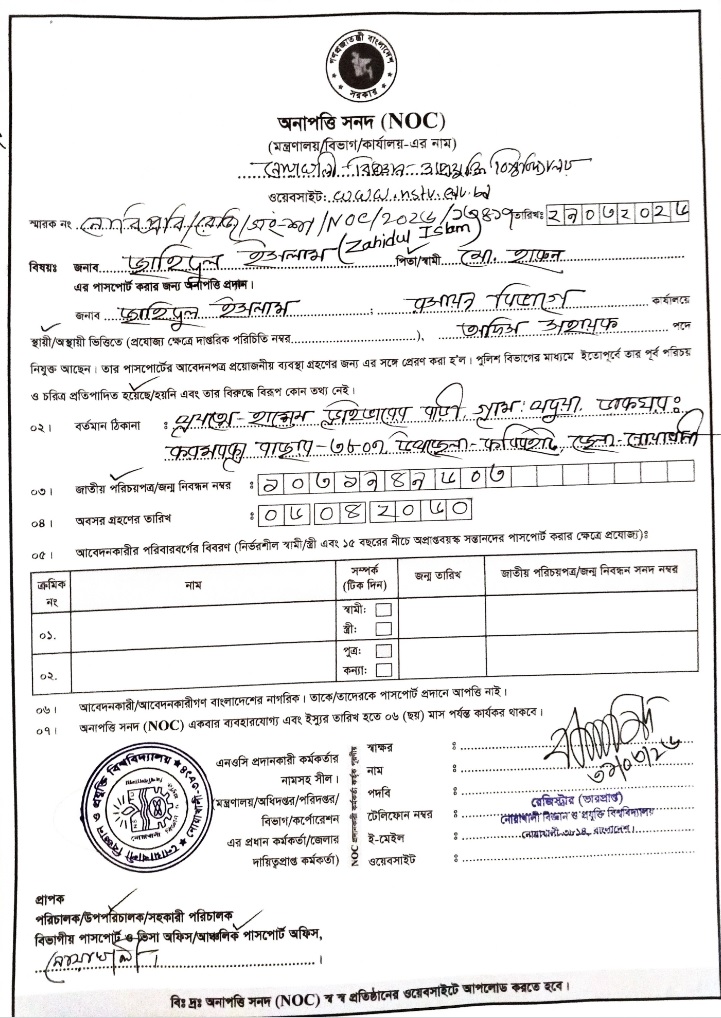 গণপ্রজাতন্ত্রী বাংলাদেশ
সরকার
অনাপত্তি সনদ (NOC)
(মন্ত্রণালয়/বিভাগ/কার্যালয়-এর নাম)
নোয়াখালী বিজ্ঞান ও প্রযুক্তি বিশ্ববিদ্যালয়
ওয়েবসাইট: www.nstu.edu.bd
স্মারক নং নোবিপ্রবি/রেজি/সংস্থা/NOC/2026/ তারিখঃ
বিষয়ঃ জনাব জাহিদুল ইসলাম (Zahidul Islam) পিতা/স্বামী মো. হারুন
এর পাসপোর্ট করার জন্য অনাপত্তি প্রদান।
জনাব জাহিদুল ইসলাম ; বিভাগে কার্যালয়ে
স্থায়ী/অস্থায়ী ভিত্তিতে (প্রযোজ্য ক্ষেত্রে দাপ্তরিক পরিচিতি নম্বর), অফিস সহায়ক পদে
নিযুক্ত আছেন। তার পাসপোর্টের আবেদনপত্র প্রয়োজনীয় ব্যবস্থা গ্রহণের জন্য এর সঙ্গে প্রেরণ করা হ'ল। পুলিশ বিভাগের মাধ্যমে ইতোপূর্বে তার পূর্ব পরিচয়
ও চরিত্র প্রতিপাদিত হয়েছে/হয়নি এবং তার বিরুদ্ধে বিরূপ কোন তথ্য নেই।
০২। বর্তমান ঠিকানা : বাড়ী গ্রাম: ডাকঘর:
নোয়াখালী
০৩। জাতীয় পরিচয়পত্র/জন্ম নিবন্ধন নম্বর :
০৪। অবসর গ্রহণের তারিখ :
০৫। আবেদনকারীর পরিবারবর্গের বিবরণ (নির্ভরশীল স্বামী/স্ত্রী এবং ১৫ বছরের নীচে অপ্রাপ্তবয়স্ক সন্তানদের পাসপোর্ট করার ক্ষেত্রে প্রযোজ্য)ঃ
ক্রমিক নং নাম সম্পর্ক (টিক দিন) জন্ম তারিখ জাতীয় পরিচয়পত্র/জন্ম নিবন্ধন সনদ নম্বর
০১. স্বামী:
স্ত্রী:
০২. পুত্র:
কন্যা:
০৬। আবেদনকারী/আবেদনকারীগণ বাংলাদেশের নাগরিক। তাকে/তাদেরকে পাসপোর্ট প্রদানে আপত্তি নাই।
০৭। অনাপত্তি সনদ (NOC) একবার ব্যবহারযোগ্য এবং ইস্যুর তারিখ হতে ০৬ (ছয়) মাস পর্যন্ত কার্যকর থাকবে।
এনওসি প্রদানকারী কর্মকর্তার
নামসহ সীল।
(মন্ত্রণালয়/অধিদপ্তর/পরিদপ্তর/
বিভাগ/কর্পোরেশন
এর প্রধান কর্মকর্তা/জেলার
দায়িত্বপ্রাপ্ত কর্মকর্তা)
স্বাক্ষর :
নাম :
পদবি :
টেলিফোন নম্বর :
ই-মেইল :
ওয়েবসাইট :
রেজিস্ট্রার (ভারপ্রাপ্ত)
নোয়াখালী বিজ্ঞান ও প্রযুক্তি বিশ্ববিদ্যালয়
নোয়াখালী-৩৮১৪, বাংলাদেশ।
প্রাপক
পরিচালক/উপপরিচালক/সহকারী পরিচালক
বিভাগীয় পাসপোর্ট ও ভিসা অফিস/আঞ্চলিক পাসপোর্ট অফিস,
নোয়াখালী।
বিঃ দ্রঃ অনাপত্তি সনদ (NOC) স্ব স্ব প্রতিষ্ঠানের ওয়েবসাইটে আপলোড করতে হবে।